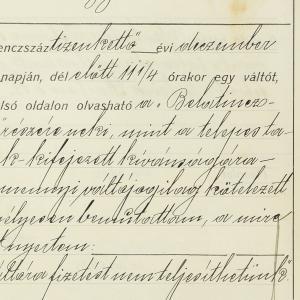 enczszáz tizenkettő évi deczember
napján, dél előtt 11 1/4 órakor egy váltót,
lső oldalon olvasható a „Belatincz-
részére neki, mint a telepes ta-
k kifejezett kivánságára-
mennyi váltójogilag kötelezett
élyesen bemutattam, a mire
nyertem:
ltóra fizetést nem teljesíthetünk"